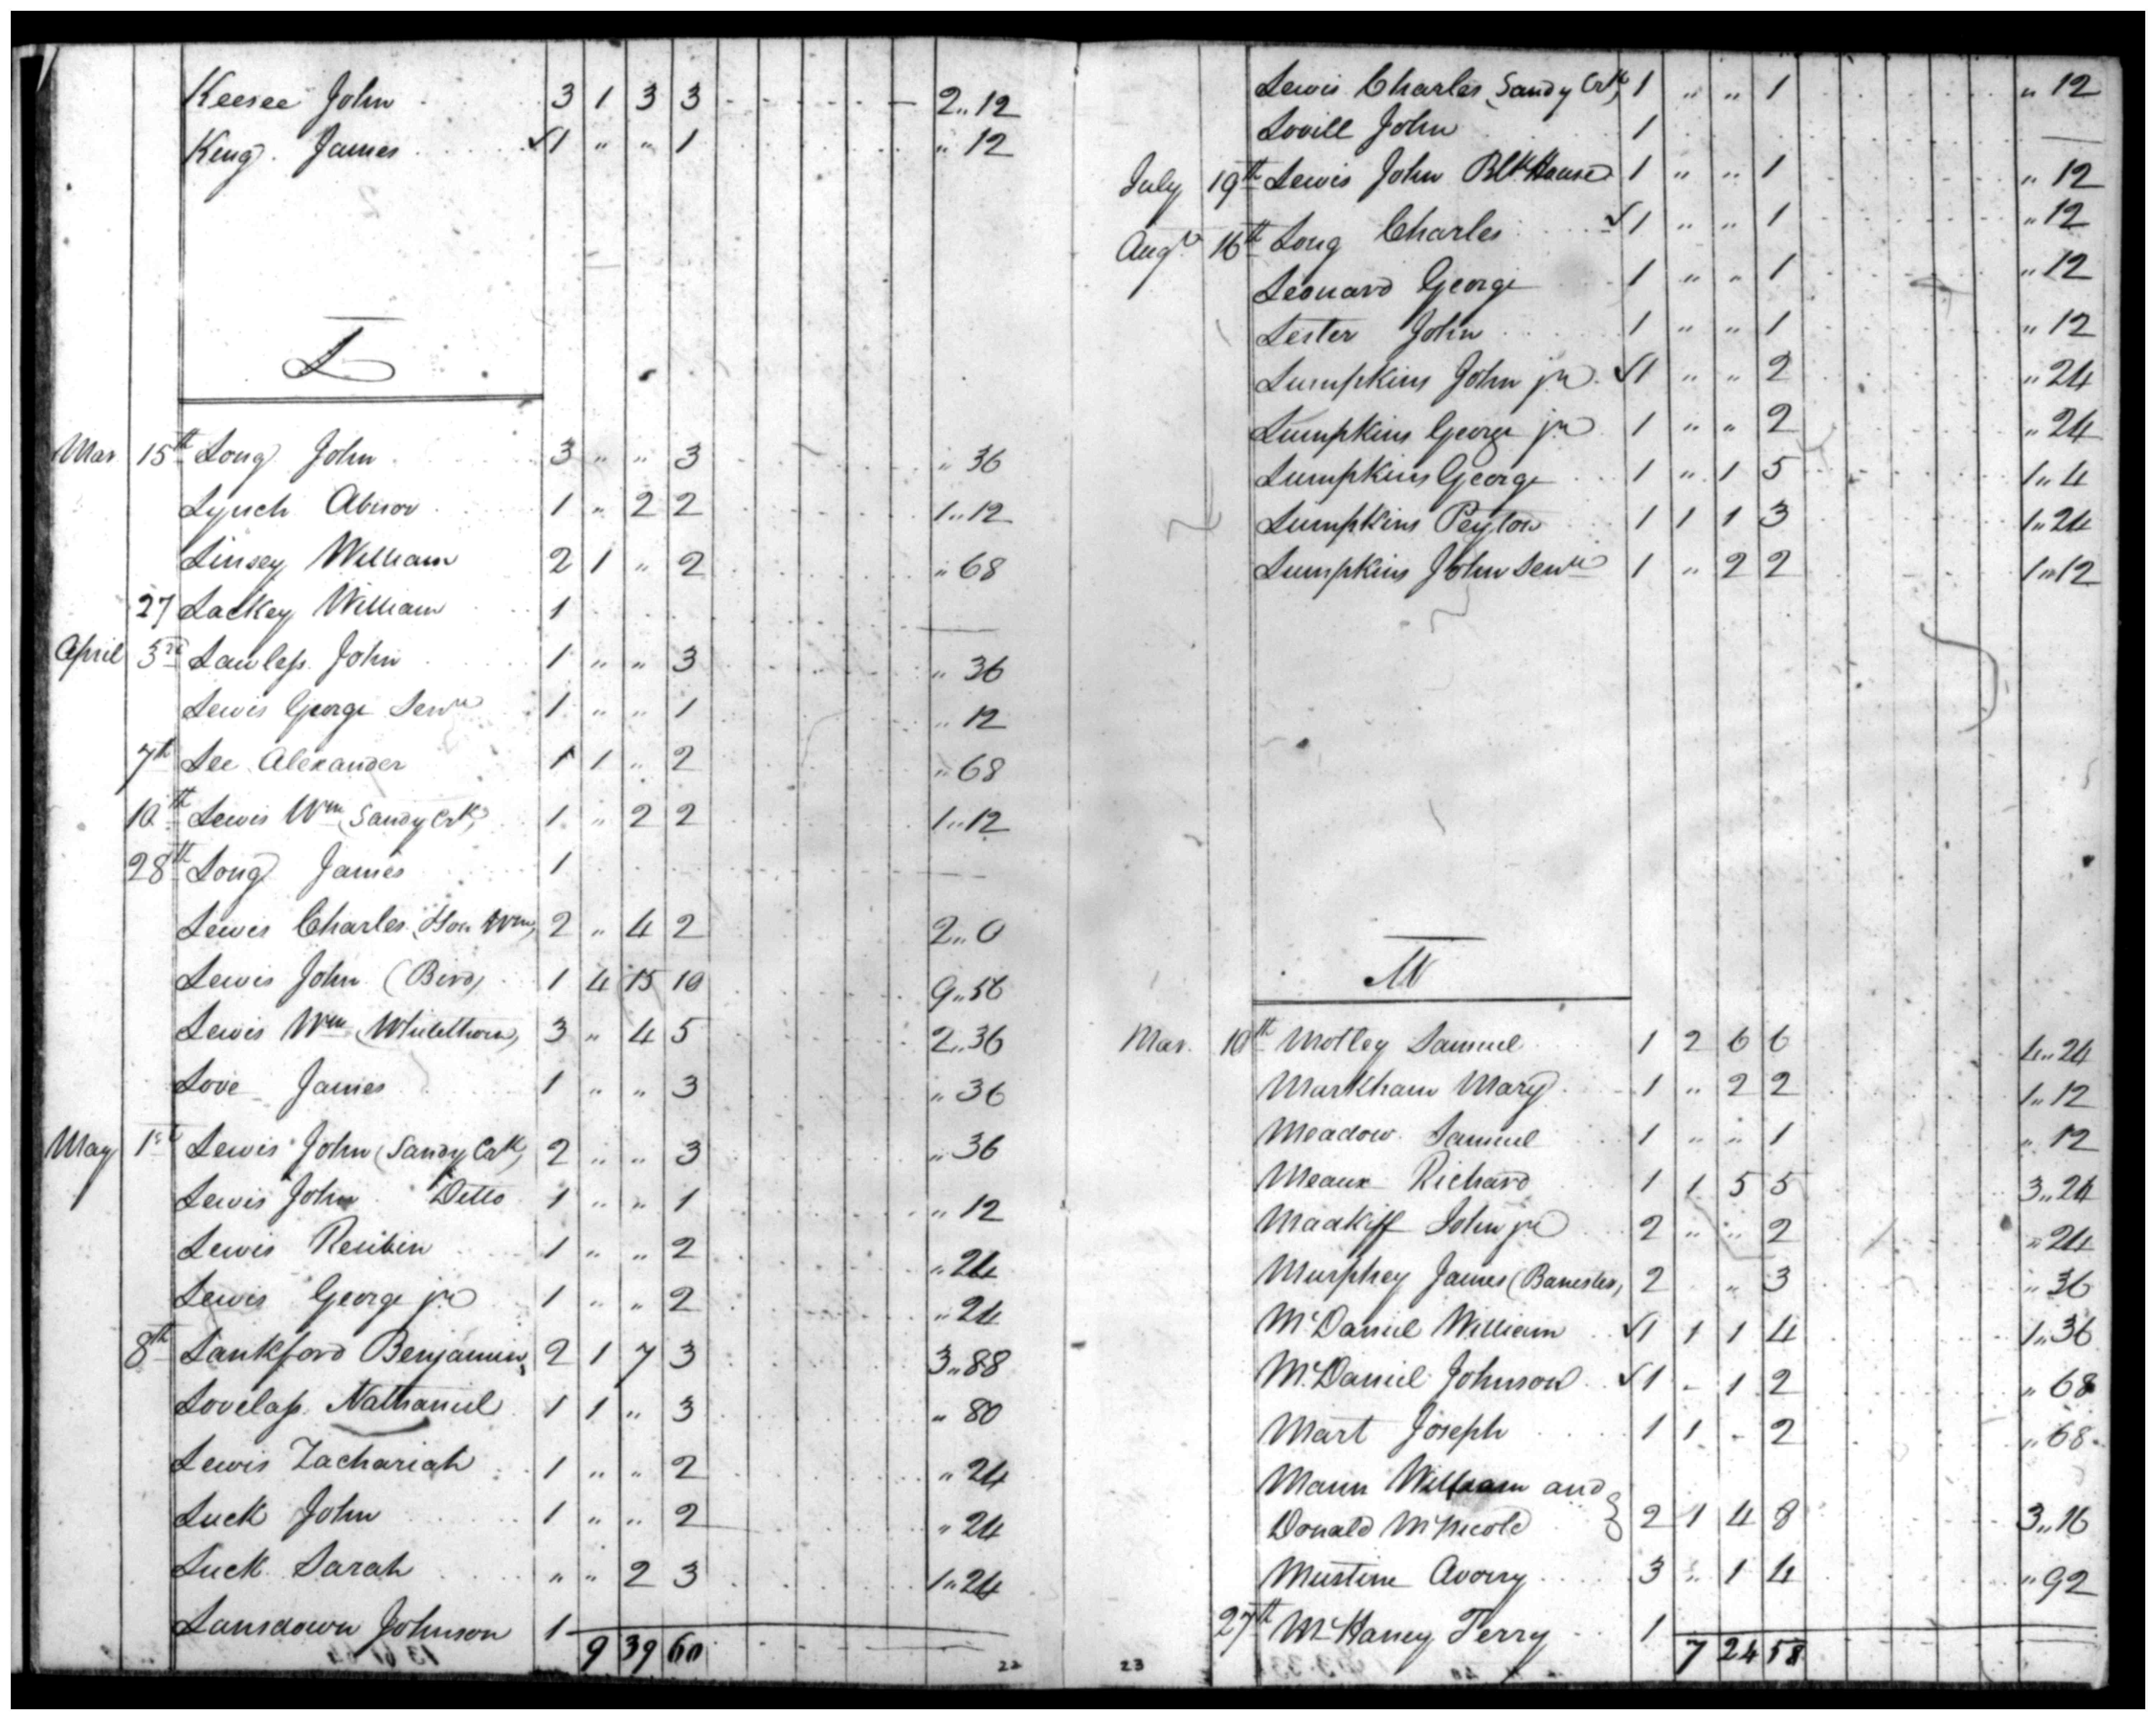 Keesee John 3 1 3 3 2..12
King James ✓1 " " 1 " 12
L
Mar 15th Long John 3 " " 3 " 36
Lynch Abner 1 " 2 2 1..12
Linsey William 2 1 " 2 " 68
27 Lackey William 1
April 3rd Lawless John 1 " " 3 " 36
Lewis George Senr 1 " " 1 " 12
7th Lee Alexander 1 1 " 2 " 68
10th Lewis Wm (Sandy Crk) 1 " 2 2 1..12
28th Long James 1
Lewis Charles (Son Wm) 2 " 4 2 2..0
Lewis John (Bird) 1 4 15 10 9..56
Lewis Wm (Whitethorn) 3 " 4 5 2..36
Love James 1 " " 3 " 36
May 1st Lewis John (Sandy Crk) 2 " " 3 " 36
Lewis John Ditto 1 " " 1 " 12
Lewis Reubin 1 " " 2 " 24
Lewis George jr 1 " " 2 " 24
8th Lankford Benjamin 2 1 7 3 3..88
Lovelass Nathaniel 1 1 " 3 " 80
Lewis Zachariah 1 " " 2 " 24
Luck John 1 " " 2 " 24
Luck Sarah " " 2 3 1..24
Lansdown Johnson 1
9 39 60
22
Lewis Charles (Sandy Crk) 1 " " 1 " 12
Lovill John 1
July 19th Lewis John Blk House 1 " " 1 " 12
Augt 16th Long Charles ✓1 " " 1 " 12
Leonard George 1 " " 1 " 12
Lester John 1 " " 1 " 12
Lumpkins John jr ✓1 " " 2 " 24
Lumpkins George jr 1 " " 2 " 24
Lumpkins George 1 " 1 5 1..4
Lumpkins Peyton 1 1 1 3 1..24
Lumpkins John Senr 1 " 2 2 1..12
M
Mar. 10th Motley Samuel 1 2 6 6 4..24
Markham Mary 1 " 2 2 1..12
Meadow Samuel 1 " " 1 " 12
Meaux Richard 1 1 5 5 3..24
Madkiff John jr 2 " " 2 " 24
Murphey James (Banester) 2 " 3 " 36
McDaniel William ✓1 1 1 4 1..36
McDaniel Johnson ✓1 - 1 2 " 68
Mart Joseph 1 1 - 2 " 68
Mann William and
Donald McNicole } 2 1 4 8 3..16
Mustine Avory 3 " 1 4 " 92
27th McHaney Terry 1
7 24 58
23